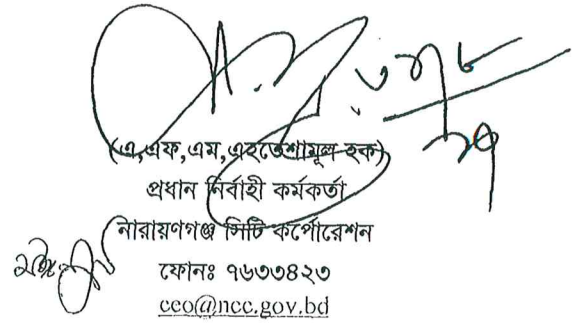 (এ,এফ,এম,এহতেশামূল হক)
প্রধান নির্বাহী কর্মকর্তা
নারায়ণগঞ্জ সিটি কর্পোরেশন
ফোনঃ ৭৬৩৩৪২৩
ceo@ncc.gov.bd